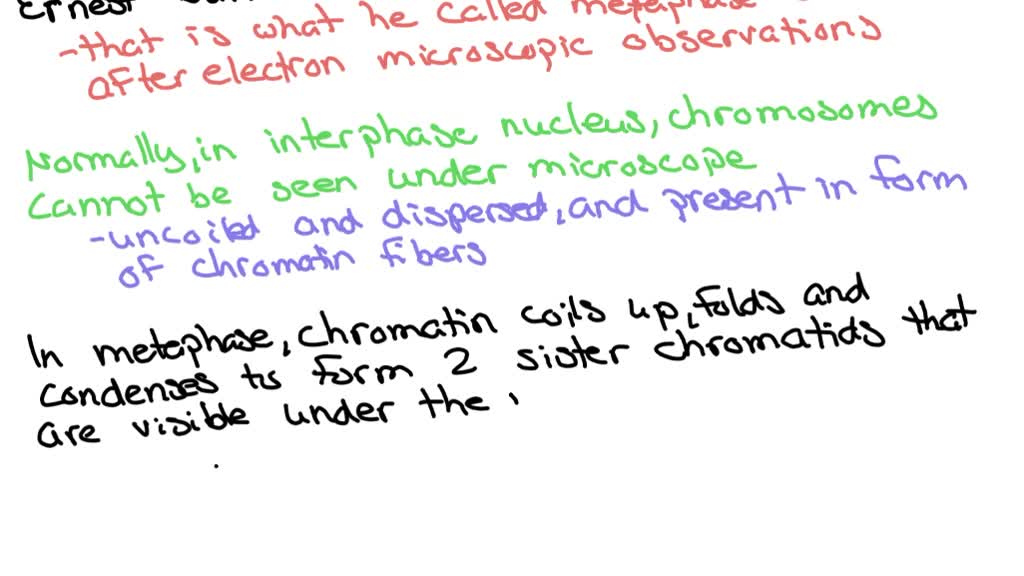 Ernest
-that is what he called metaphase
after electron microscopic observations
Normally, in interphase nucleus, chromosomes
cannot be seen under microscope
-uncoiled and dispersed, and present in form
of chromatin fibers
In metaphase, chromatin coils up, folds and
condenses to form 2 sister chromatids that
are visible under the